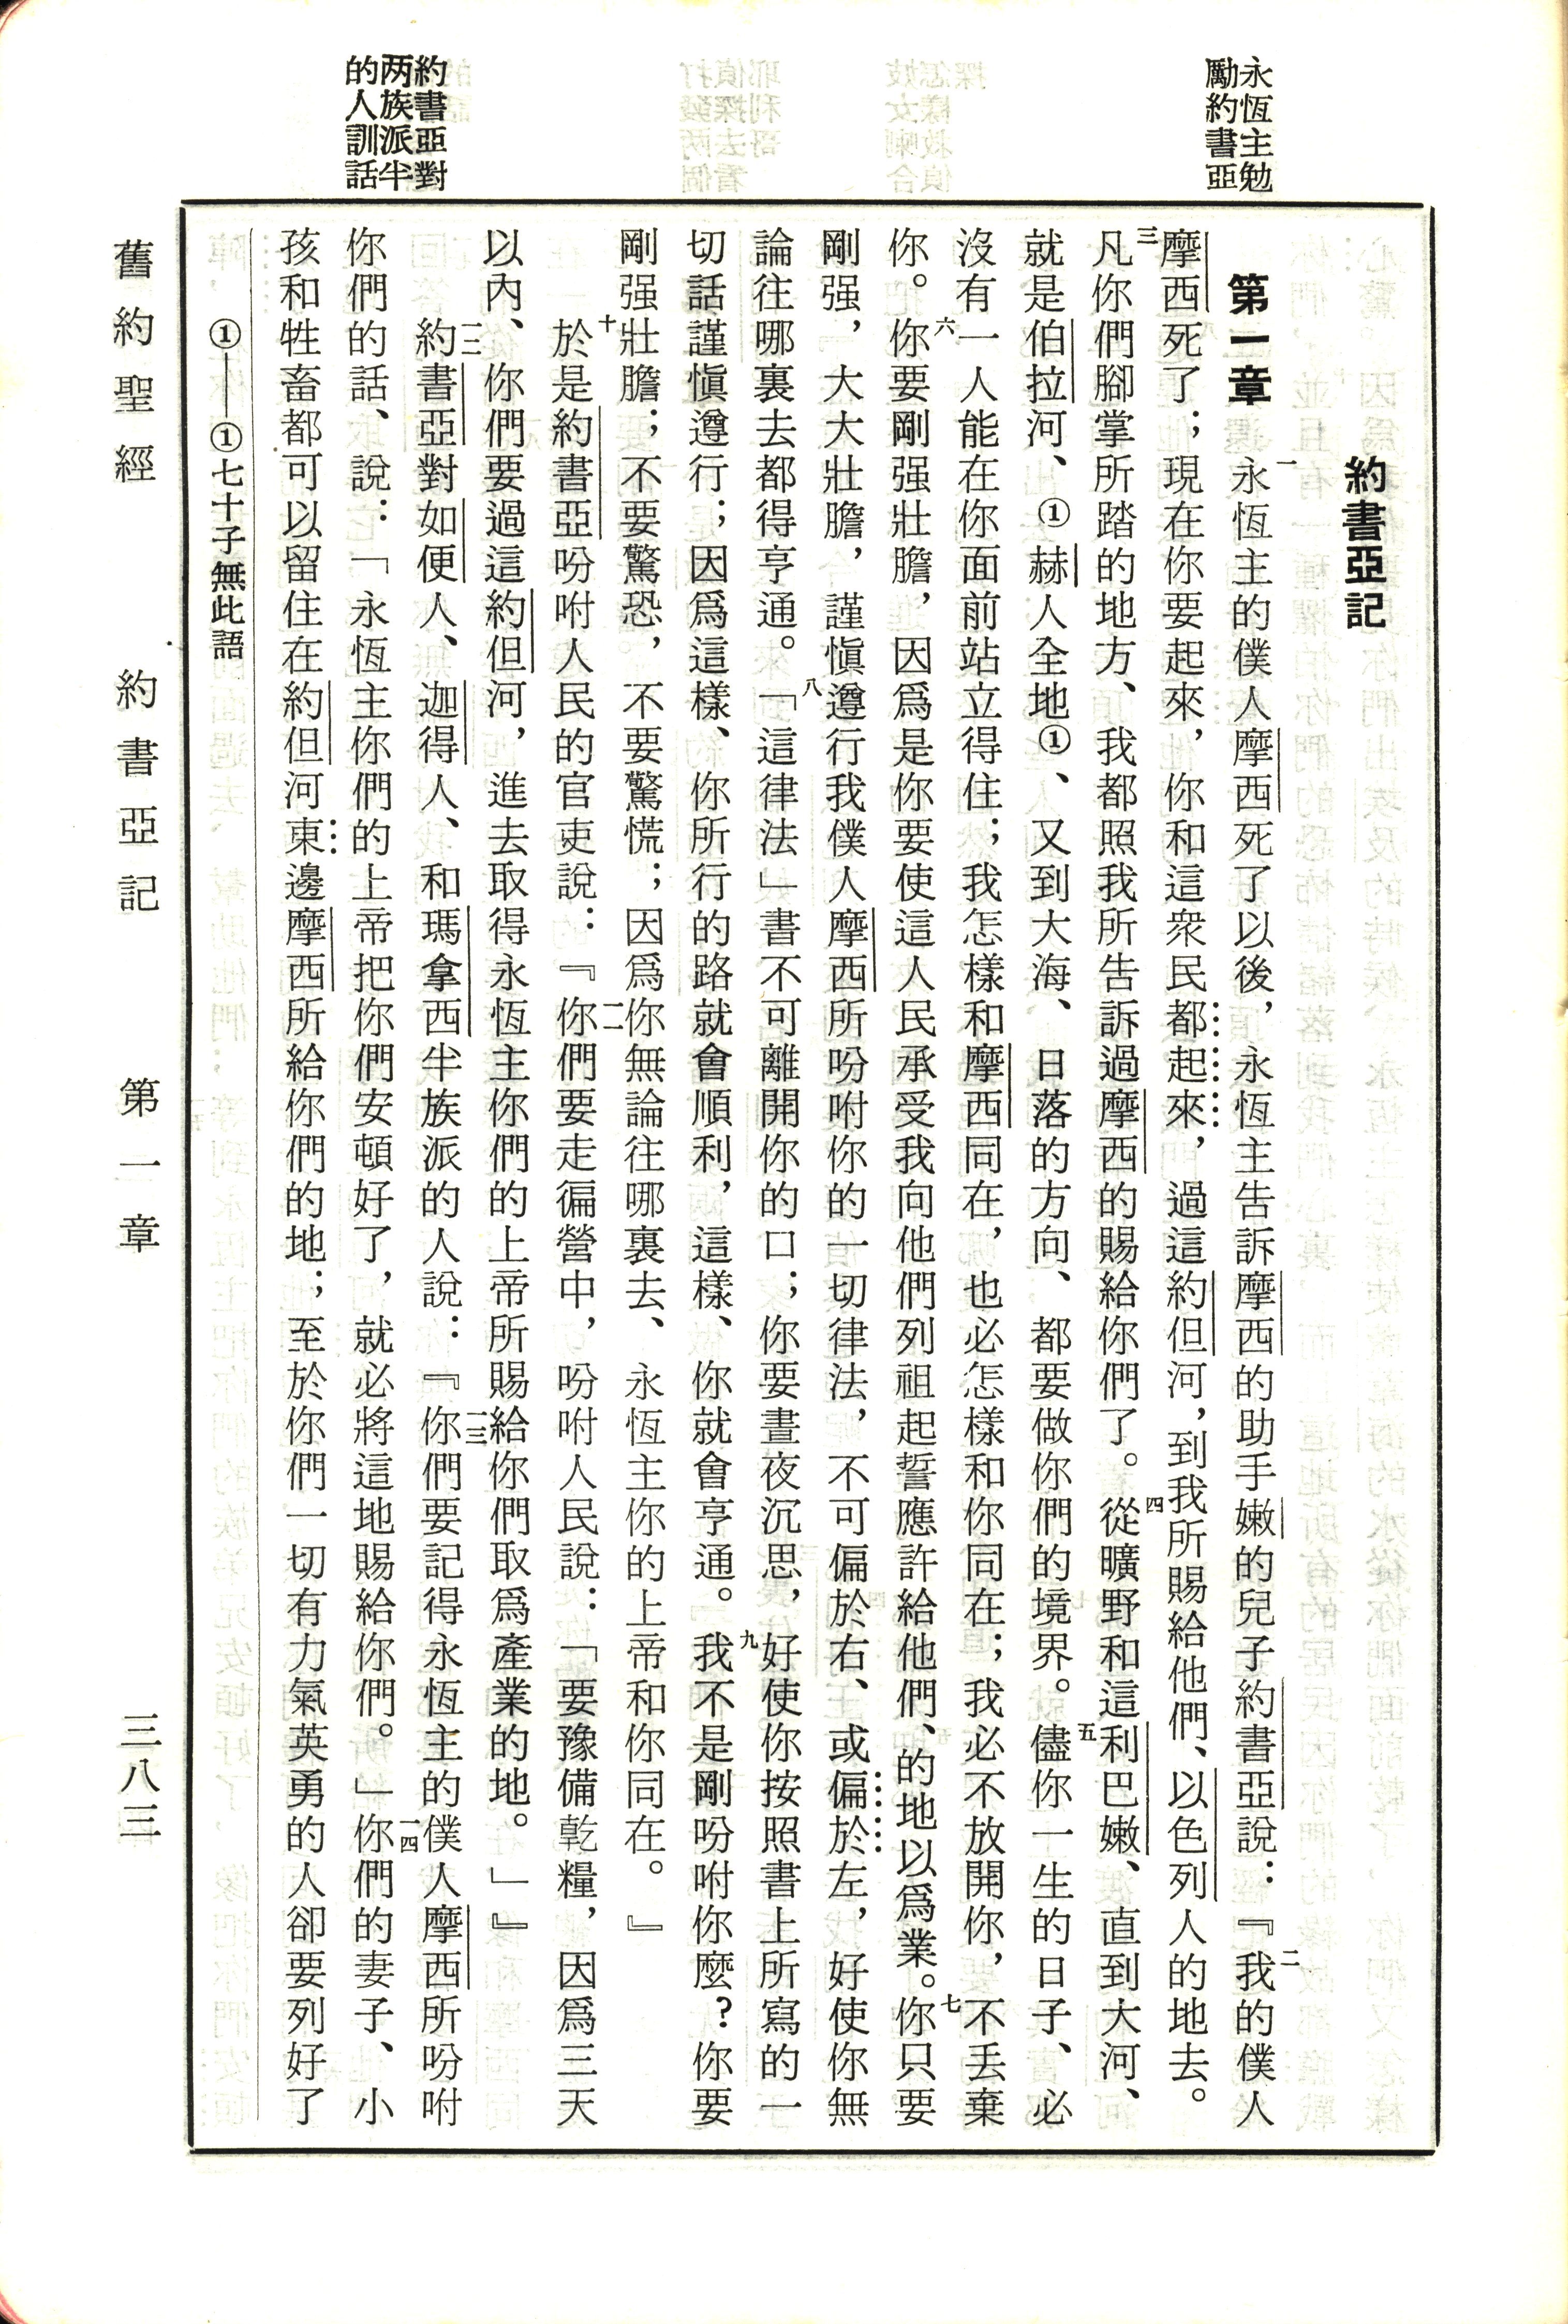 永恆主勉
勵約書亞
約書亞對
两族派半
的人訓話
約書亞記
第一章 一永恆主的僕人摩西死了以後，永恆主告訴摩西的助手嫩的兒子約書亞說：『二我的僕人
摩西死了；現在你要起來，你和這衆民都起來，過這約但河，到我所賜給他們、以色列人的地去。
三凡你們腳掌所踏的地方、我都照我所告訴過摩西的賜給你們了。四從曠野和這利巴嫩、直到大河、
就是伯拉河、①赫人全地①、又到大海、日落的方向、都要做你們的境界。五儘你一生的日子、必
沒有一人能在你面前站立得住；我怎樣和摩西同在，也必怎樣和你同在；我必不放開你，不丢棄
你。六你要剛强壯膽，因爲是你要使這人民承受我向他們列祖起誓應許給他們、的地以爲業。七你只要
剛强，大大壯膽，謹愼遵行我僕人摩西所吩咐你的一切律法，不可偏於右、或偏於左，好使你無
論往哪裏去都得亨通。八「這律法」書不可離開你的口；你要晝夜沉思，好使你按照書上所寫的一
切話謹愼遵行；因爲這樣、你所行的路就會順利，這樣、你就會亨通。九我不是剛吩咐你麼？你要
剛强壯膽；不要驚恐，不要驚慌；因爲你無論往哪裏去、永恆主你的上帝和你同在。』
十於是約書亞吩咐人民的官吏說：『一一你們要走徧營中，吩咐人民說：「要豫備乾糧，因爲三天
以內、你們要過這約但河，進去取得永恆主你們的上帝所賜給你們取爲產業的地。」』
一二約書亞對如便人、迦得人、和瑪拿西半族派的人說：『一三你們要記得永恆主的僕人摩西所吩咐
你們的話、說：「永恆主你們的上帝把你們安頓好了，就必將這地賜給你們。」一四你們的妻子、小
孩和牲畜都可以留住在約但河東邊摩西所給你們的地；至於你們一切有力氣英勇的人卻要列好了
①——①七十子無此語
舊約聖經 約書亞記 第一章 三八三